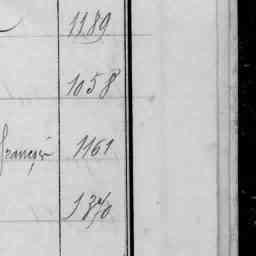 1189
1058
français 1161